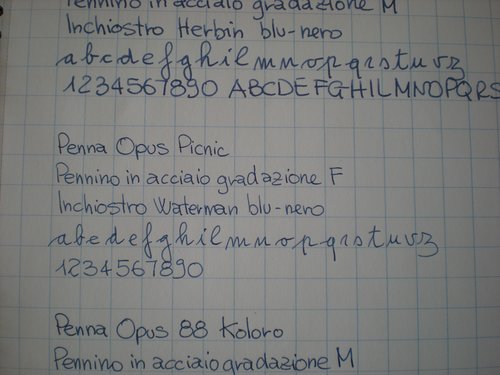 Pennino in acciaio gradazione M
Inchiostro Herbin blu-nero
abcdefghilmnopqrstuvz
1234567890 ABCDEFGHILMNOPQRS
Penna Opus Picnic
Pennino in acciaio gradazione F
Inchiostro Waterman blu-nero
abcdefghilmnopqrstuvz
1234567890
Penna Opus 88 Koloro
Pennino in acciaio gradazione M